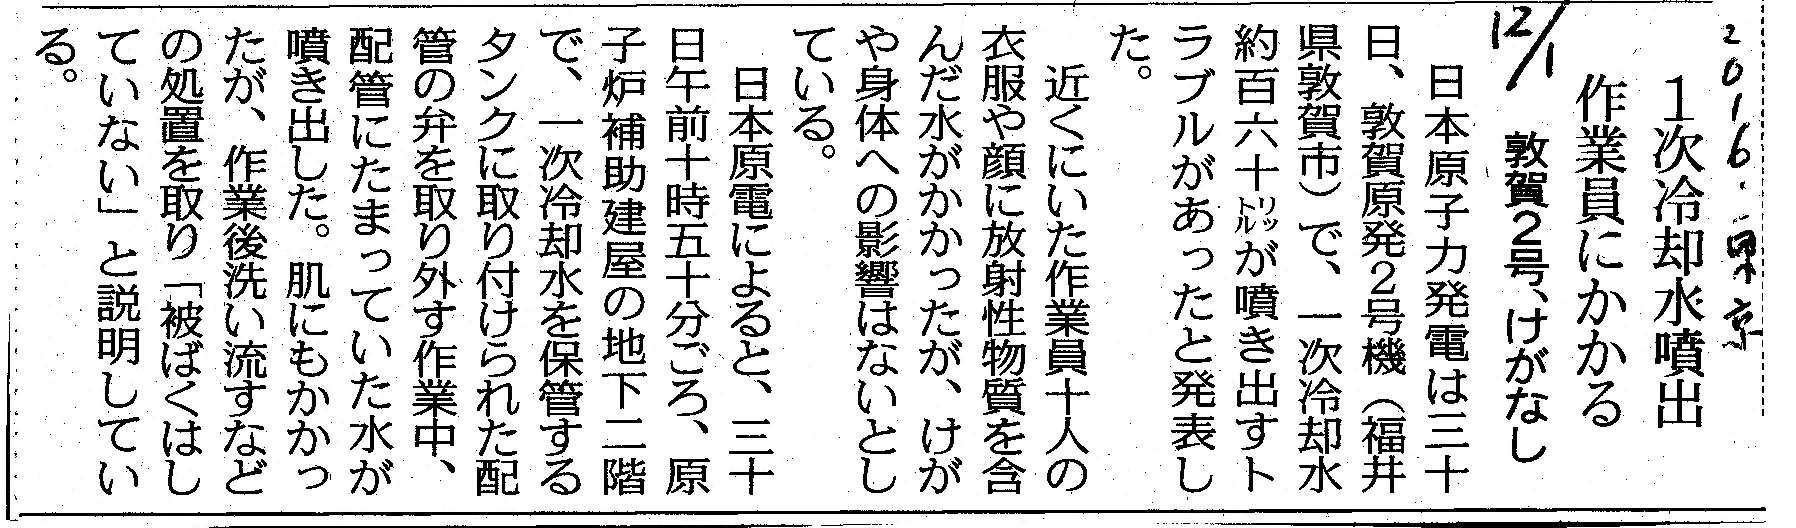 2016.東京
12/1
1次冷却水噴出
作業員にかかる
敦賀2号、けがなし
日本原子力発電は三十
日、敦賀原発2号機（福井
県敦賀市）で、一次冷却水
約百六十リットルが噴き出すト
ラブルがあったと発表し
た。
近くにいた作業員十人の
衣服や顔に放射性物質を含
んだ水がかかったが、けが
や身体への影響はないとし
ている。
日本原電によると、三十
日午前十時五十分ごろ、原
子炉補助建屋の地下二階
で、一次冷却水を保管する
タンクに取り付けられた配
管の弁を取り外す作業中、
配管にたまっていた水が
噴き出した。肌にもかかっ
たが、作業後洗い流すなど
の処置を取り「被ばくはし
ていない」と説明してい
る。